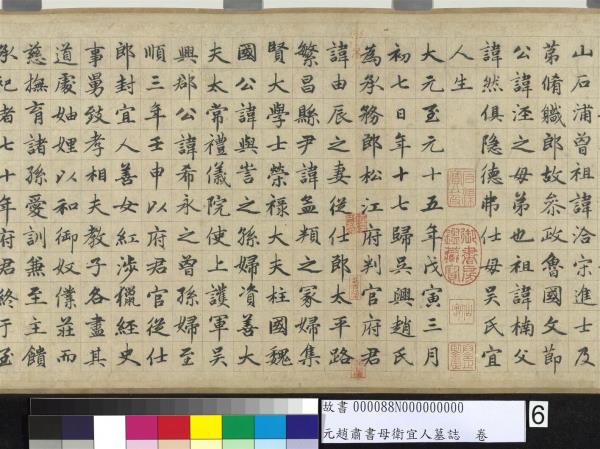 山石浦曾祖諱洽宗進士及
苐脩軄郎故叅政魯國文節
公諱涇之母苐也祖諱楠父
諱然俱隐德弗仕母吴氏宜
人生
大元至元十五年戊寅三月
初七日年十七歸吴興趙氏
為承務郎松江府判官府君
諱由辰之妻從仕郎太平路
繁昌縣尹諱孟頖之冢婦集
賢大學士榮禄大夫柱國魏
國公諱與訔之孫婦資善大
夫太常禮儀院使上護軍吴
興郡公諱希永之曾孫婦至
順三年壬申以府君官從仕
郎封宜人善女紅涉獵經史
事舅致孝相夫教子各盡其
道處妯娌以和御奴僕莊而
慈撫育諸孫愛訓兼至主饋
承祀者七十年府君終于至
故書 000088N000000000
元趙肅書母衛宜人墓誌 卷
6